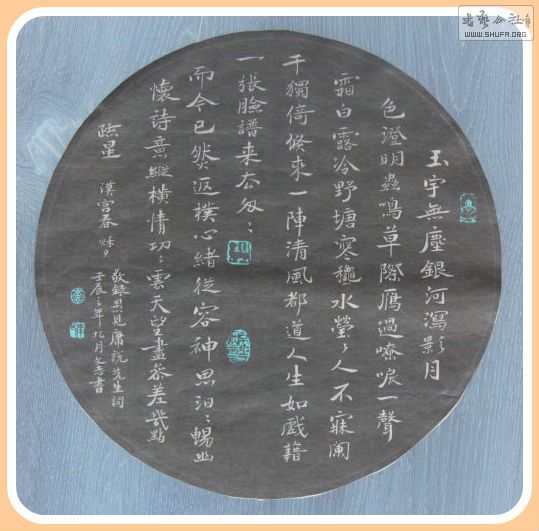 玉宇無塵銀河瀉影月
色澄明蟲鳴草際雁過嘹唳一聲
霜白露冷野塘寒穐水瑩〻人不寐闌
干獨倚倏來一陣清風都道人生如戲籍
一張臉譜来去匆〻
而今已然返樸心緒從容神思泊〻暢幽
懷詩意縱橫情切〻雲天望盡參差幾點
疏星
漢宮春 秋夕
敬錄愚見庸說先生詞
壬辰之年九月文彥書
書藝公社
WWW.SHUFA.ORG